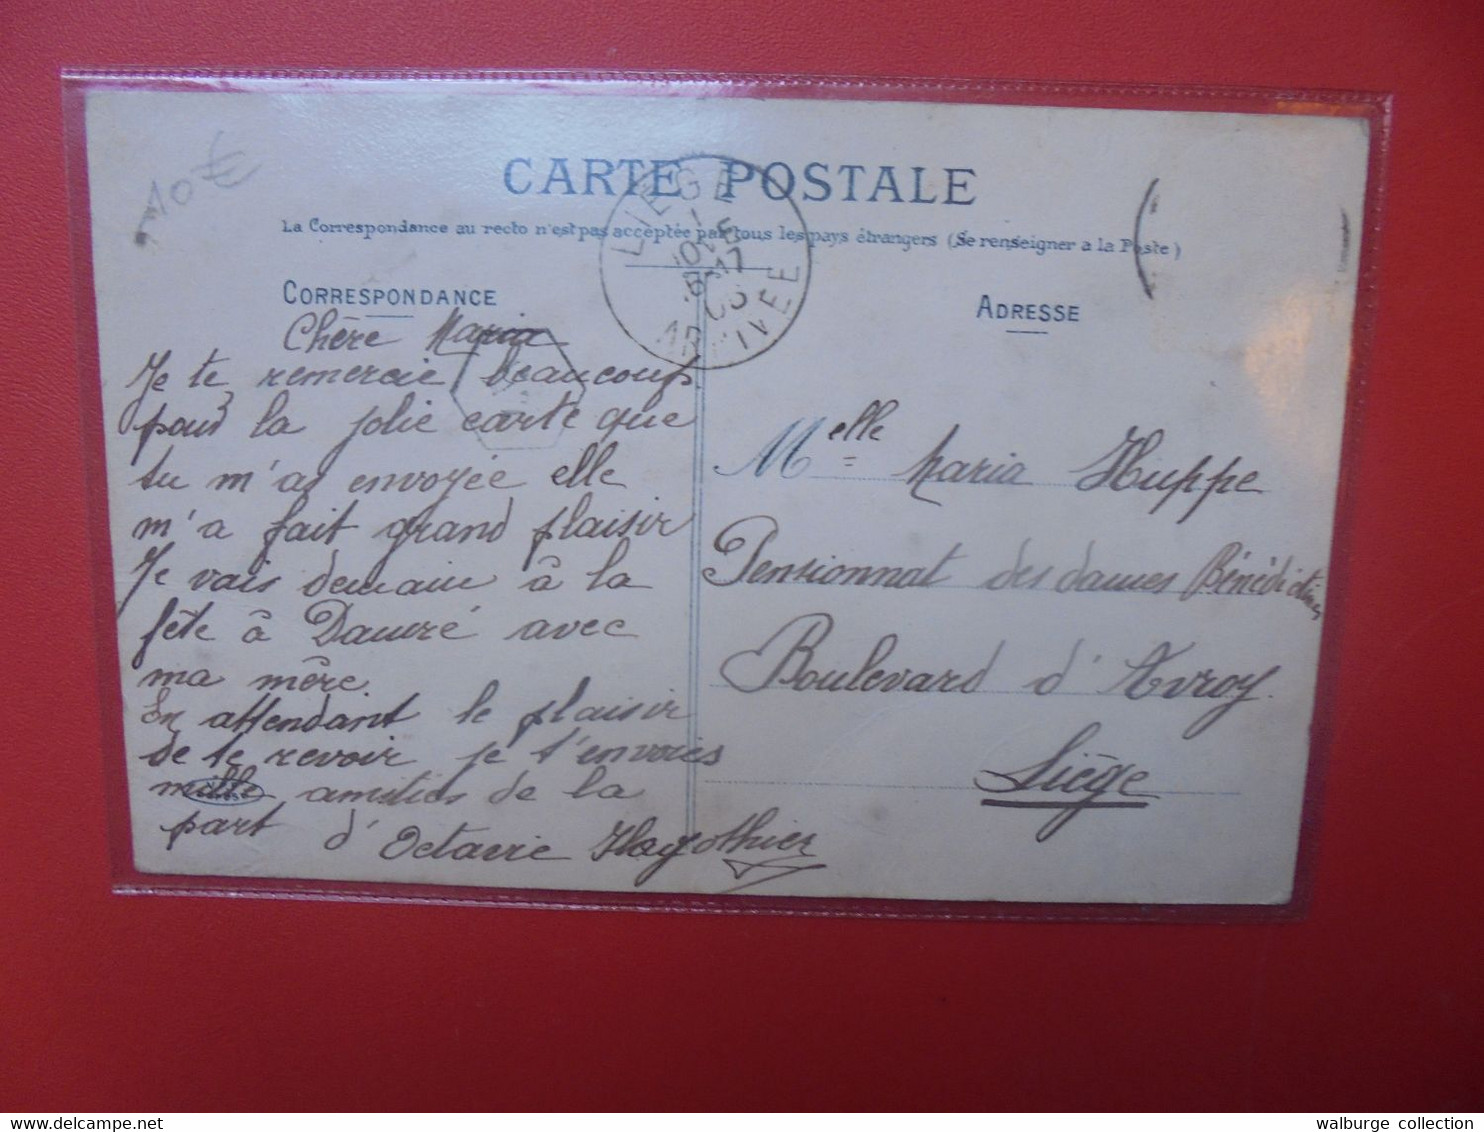 10€
CARTE POSTALE
La Correspondance au recto n'est pas acceptée par tous les pays étrangers (Se renseigner a la Poste)
LIEGE
ARRIVEE
CORRESPONDANCE
Chère Maria
Je te remercie beaucoup
pour la jolie carte que
tu m'as envoyée elle
m'a fait grand plaisir
Je vais demain à la
fête à Dauvré avec
ma mère.
En attendant le plaisir
de te revoir je t'envoies
mille amitiés de la
part d'Octavie
ADRESSE
Melle Maria Huppe
Pensionnat des dames Bénédictines
Boulevard d'Avroy.
Liège
delcampe.net
walburge collection